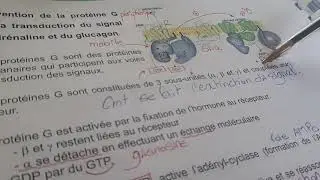 vention de la protéine G périphérique
a transduction du signal
drénaline et du glucagon
mobile
protéines G sont des protéines
anaires qui participent aux voies
sduction des signaux.
protéines G sont constituées de 3 sous-unités α, β et γ et couplées aux
Cmt se fait l'extinction du signal
otéine G est activée par la fixation de l'hormone au récepteur
- β et γ restent liées au récepteur
- α se détache en effectuant un échange moléculaire
GDP par du GTP
guanosine
active l'adényl-cyclase (formation de l'A